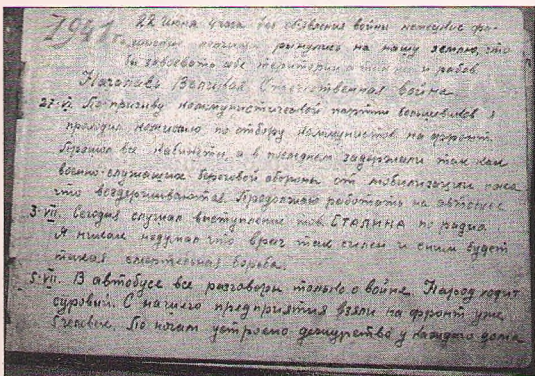 1941 г. 22 Июня утра без объявления войны немецкие фа-
полчища ринулись на нашу землю, что
бы завоевать себе территории а также и рабов.
Началась Великая Отечественная война.
27-VI. По призыву коммунистической партии большевиков я
проходил комиссию по отбору коммунистов на фронт.
Прошел все кабинеты, а в последнем задержали так как
военно-служащих береговой обороны от мобилизации пока
что воздерживаются. Продолжаю работать на автобусе
3-VII. Сегодня слушал выступление тов. СТАЛИНА по радио.
Я никак недумал что враг так силен и с ним будет
такая смертельная борьба.
5-VII. В автобусе все разговоры только о войне. Народ ходит
суровый. С нашего предприятия взяли на фронт уже
человек. По ночам устроено дежурство у каждого дома